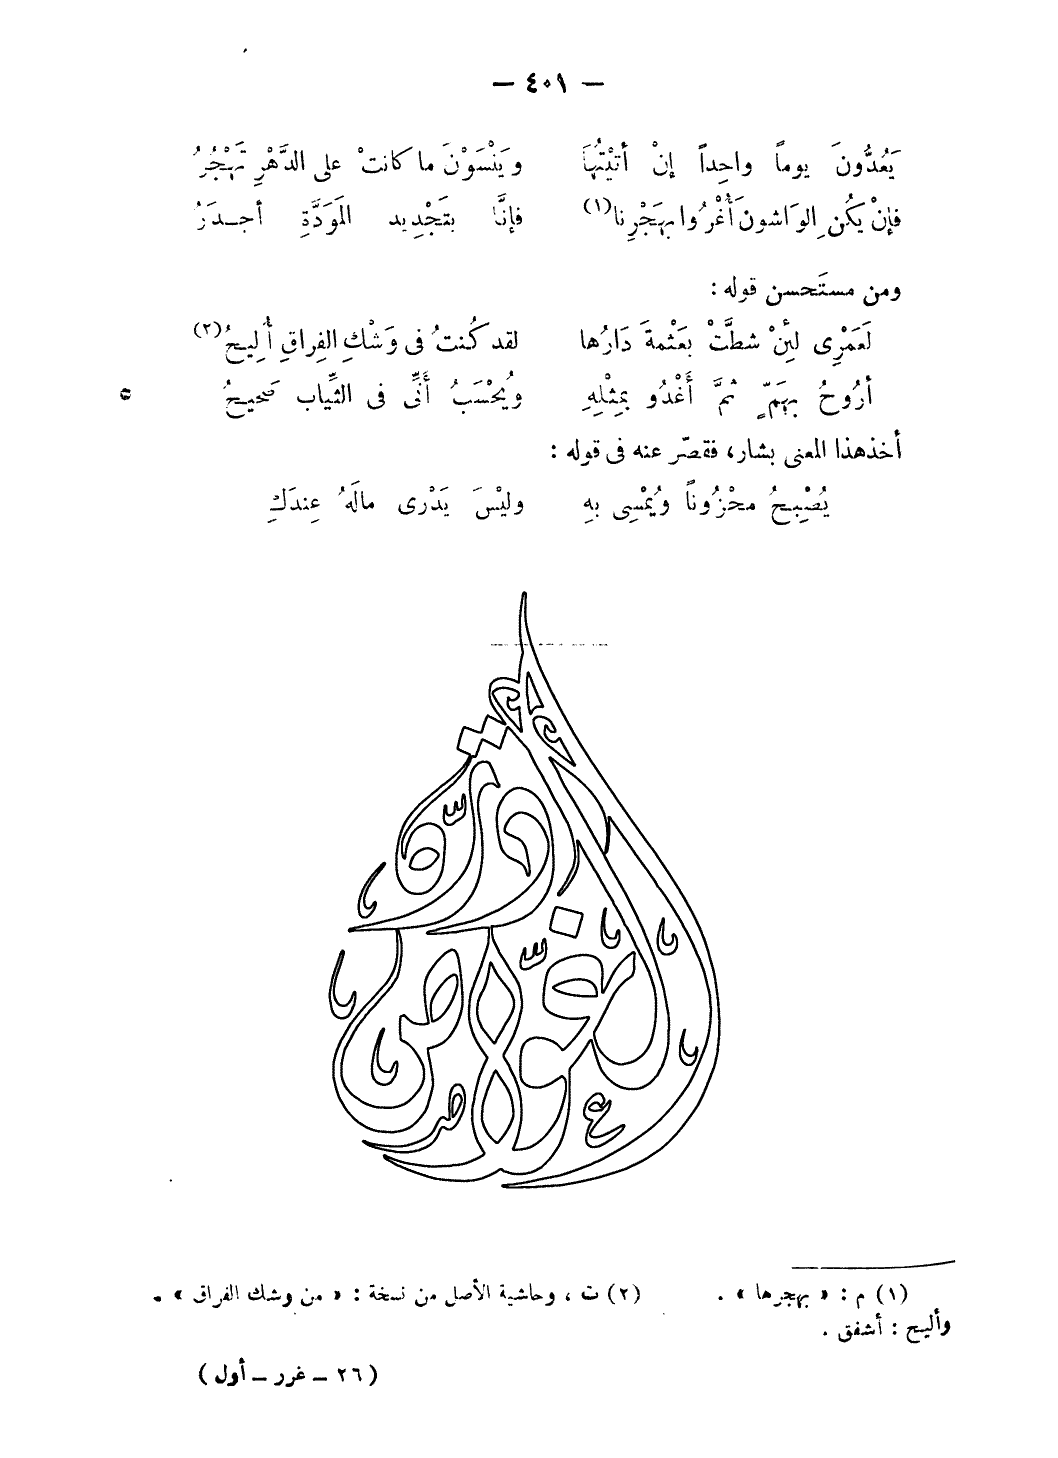 — ٤٠١ —
يَعُدُّونَ يوماً واحِداً إنْ أتيْتُهَا ويَنْسَوْنَ ما كانتْ على الدَّهْرِ تَهْجُرُ
فإنْ يكُنِ الواشون أُغْرُوا بهَجْرِنا(١) فإنَّا بتَجْدِيد المَوَدَّةِ أجدَرُ
ومن مستَحسن قوله :
لَعَمْرِى لئِنْ شطَّتْ بعَثْمةَ دَارُها لقد كُنتُ فى وَشْكِ الفِراقِ أُلِيحُ(٢)
أرُوحُ بِهَمٍّ ثمَّ أَغْدُو بمِثْلِهِ ويُحْسَبُ أَنِّى فى الثِّياب صَحيحُ ٥
أخذ هذا المعنى بشار، فقصّر عنه فى قوله :
يُصْبِحُ محْزُوناً ويُمْسِى بهِ وليْسَ يَدْرى مالَهُ عِندَكِ
(١) م : « بهجرها » . (٢) ت ، وحاشية الأصل من نسخة : « من وشك الفراق » .
وأليح : أشفق .
(٢٦ – غرر – أول)